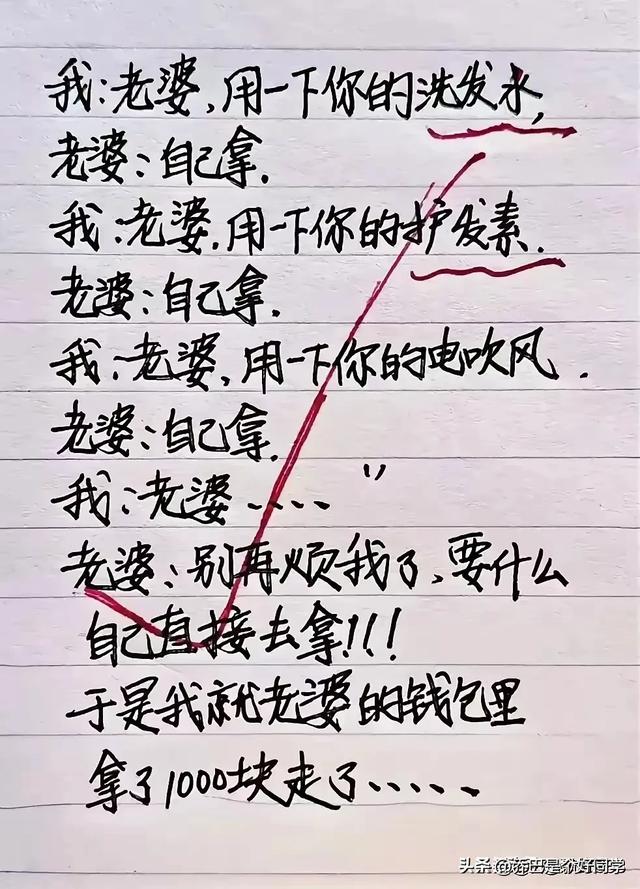 我：老婆，用一下你的洗发水，
老婆：自己拿．
我：老婆，用一下你的护发素．
老婆：自己拿．
我：老婆，用一下你的电吹风．
老婆：自己拿．
我：老婆．．．．"
老婆：别再烦我了、要什么
自己直接去拿！！！
于是我就老婆的钱包里
拿了1000块走了．．．．．
头条